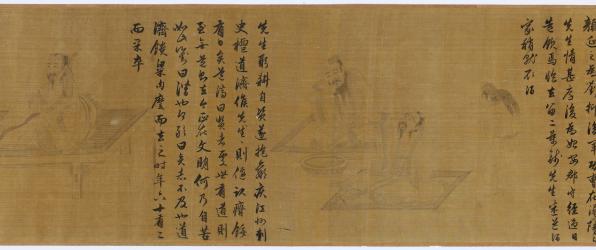 顏延之為劉柳後軍功曹在潯陽與
先生情甚厚後為始安郡 經過日
造飲焉臨去留二萬錢先生悉送酒
家稍就取酒
先生躬耕自資遂抱羸疾江州刺
史檀道濟候先生則偃臥瘠餒
有日矣道濟曰賢者處世有道則
至無道 今 在文明何乃自苦
如此 曰潛也何 志不及也道
濟饋粱肉麾而去之時年六十有三
而卒